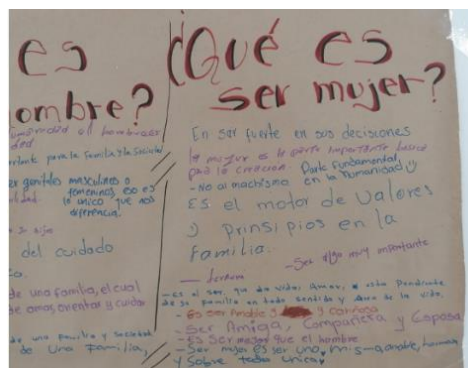 es
ombre?
para la familia y la sociedad
genitales masculinos o
femeninos eso es
lo unico que nos
diferencia.
del cuidado
de una familia, el cual
de amar, orientar y cuidar
de una familia y sociedad
de Una Familia,
¿Qué es
ser mujer?
En ser fuerte en sus decisiones
la mujer es la parte importante
para la creación. Parte fundamental
en la humanidad
- No al machismo
ES el motor de valores
y prinsipios en la
Familia.
- Ser algo muy importante
- Es el ser, que da vida, Amor,
de su familia en todo sentido y de la vida.
- Es ser Amable y cariñosa
- Ser Amiga, Compañera y Esposa
- Es Ser mejor que el hombre
- Ser mujer es ser una,
y Sobre todo única